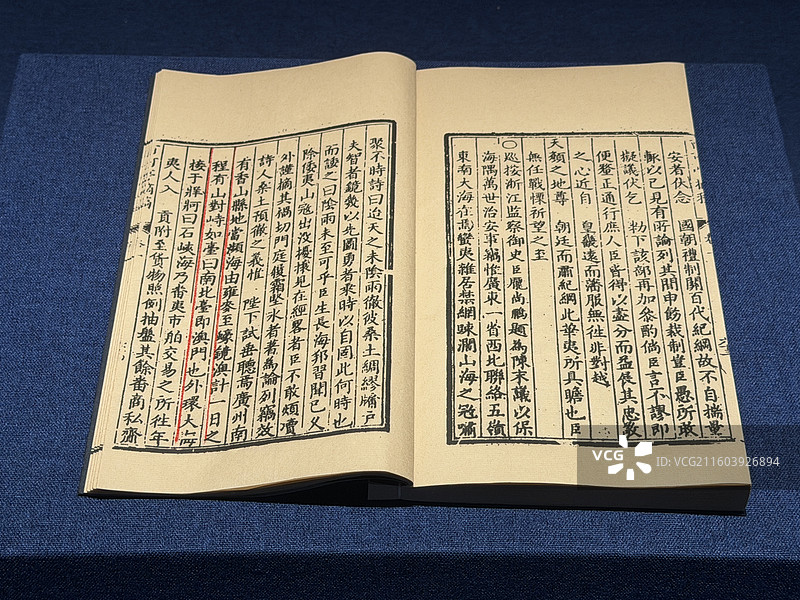 安者伏念　國朝禮制關百代紀綱故不自揣量
輒以己見有所論列其間申飭裁制豈臣愚所敢
擬議伏乞　勑下該部再加參酌倘臣言不謬即
便釐正通行庶人臣皆得以盡分而益展其忠敬
之心近自　皇畿遠而藩服無徃非對越
天顏之地尊　朝廷而肅紀綱此華夷所具瞻也臣
無任戰慄祈望之至
○巡按浙江監察御史臣龐尚鵬題為陳末議以保
海隅萬世治安事竊惟廣東一省西北聯絡五嶺
東南大海在焉蠻夷雜居禁網疎濶山海之冦嘯
聚不時詩曰迨天之未陰雨徹彼桑土綢繆牖戶
夫智者鏡幾以先圖勇者乘時以自固此何時也
而諉之曰陰雨未至可乎臣生長海邦習聞已久
除倭夷山冦出沒擾攘見在經畧者臣不敢煩瀆
外謹摘其禍切門庭履霜堅氷者著為論列竊效
詩人桑土預徹之義惟　陛下試垂聽焉廣州南
有香山縣地當瀕海由雍麥至蠔鏡澳計一日之
程有山對峙如臺曰南北臺即澳門也外環大海
接于牂牁曰石峽海乃番夷市舶交易之所徃年
夷人入　貢附至貨物照例抽盤其餘番商私齎
VCG
VCG ID:VCG211603926894